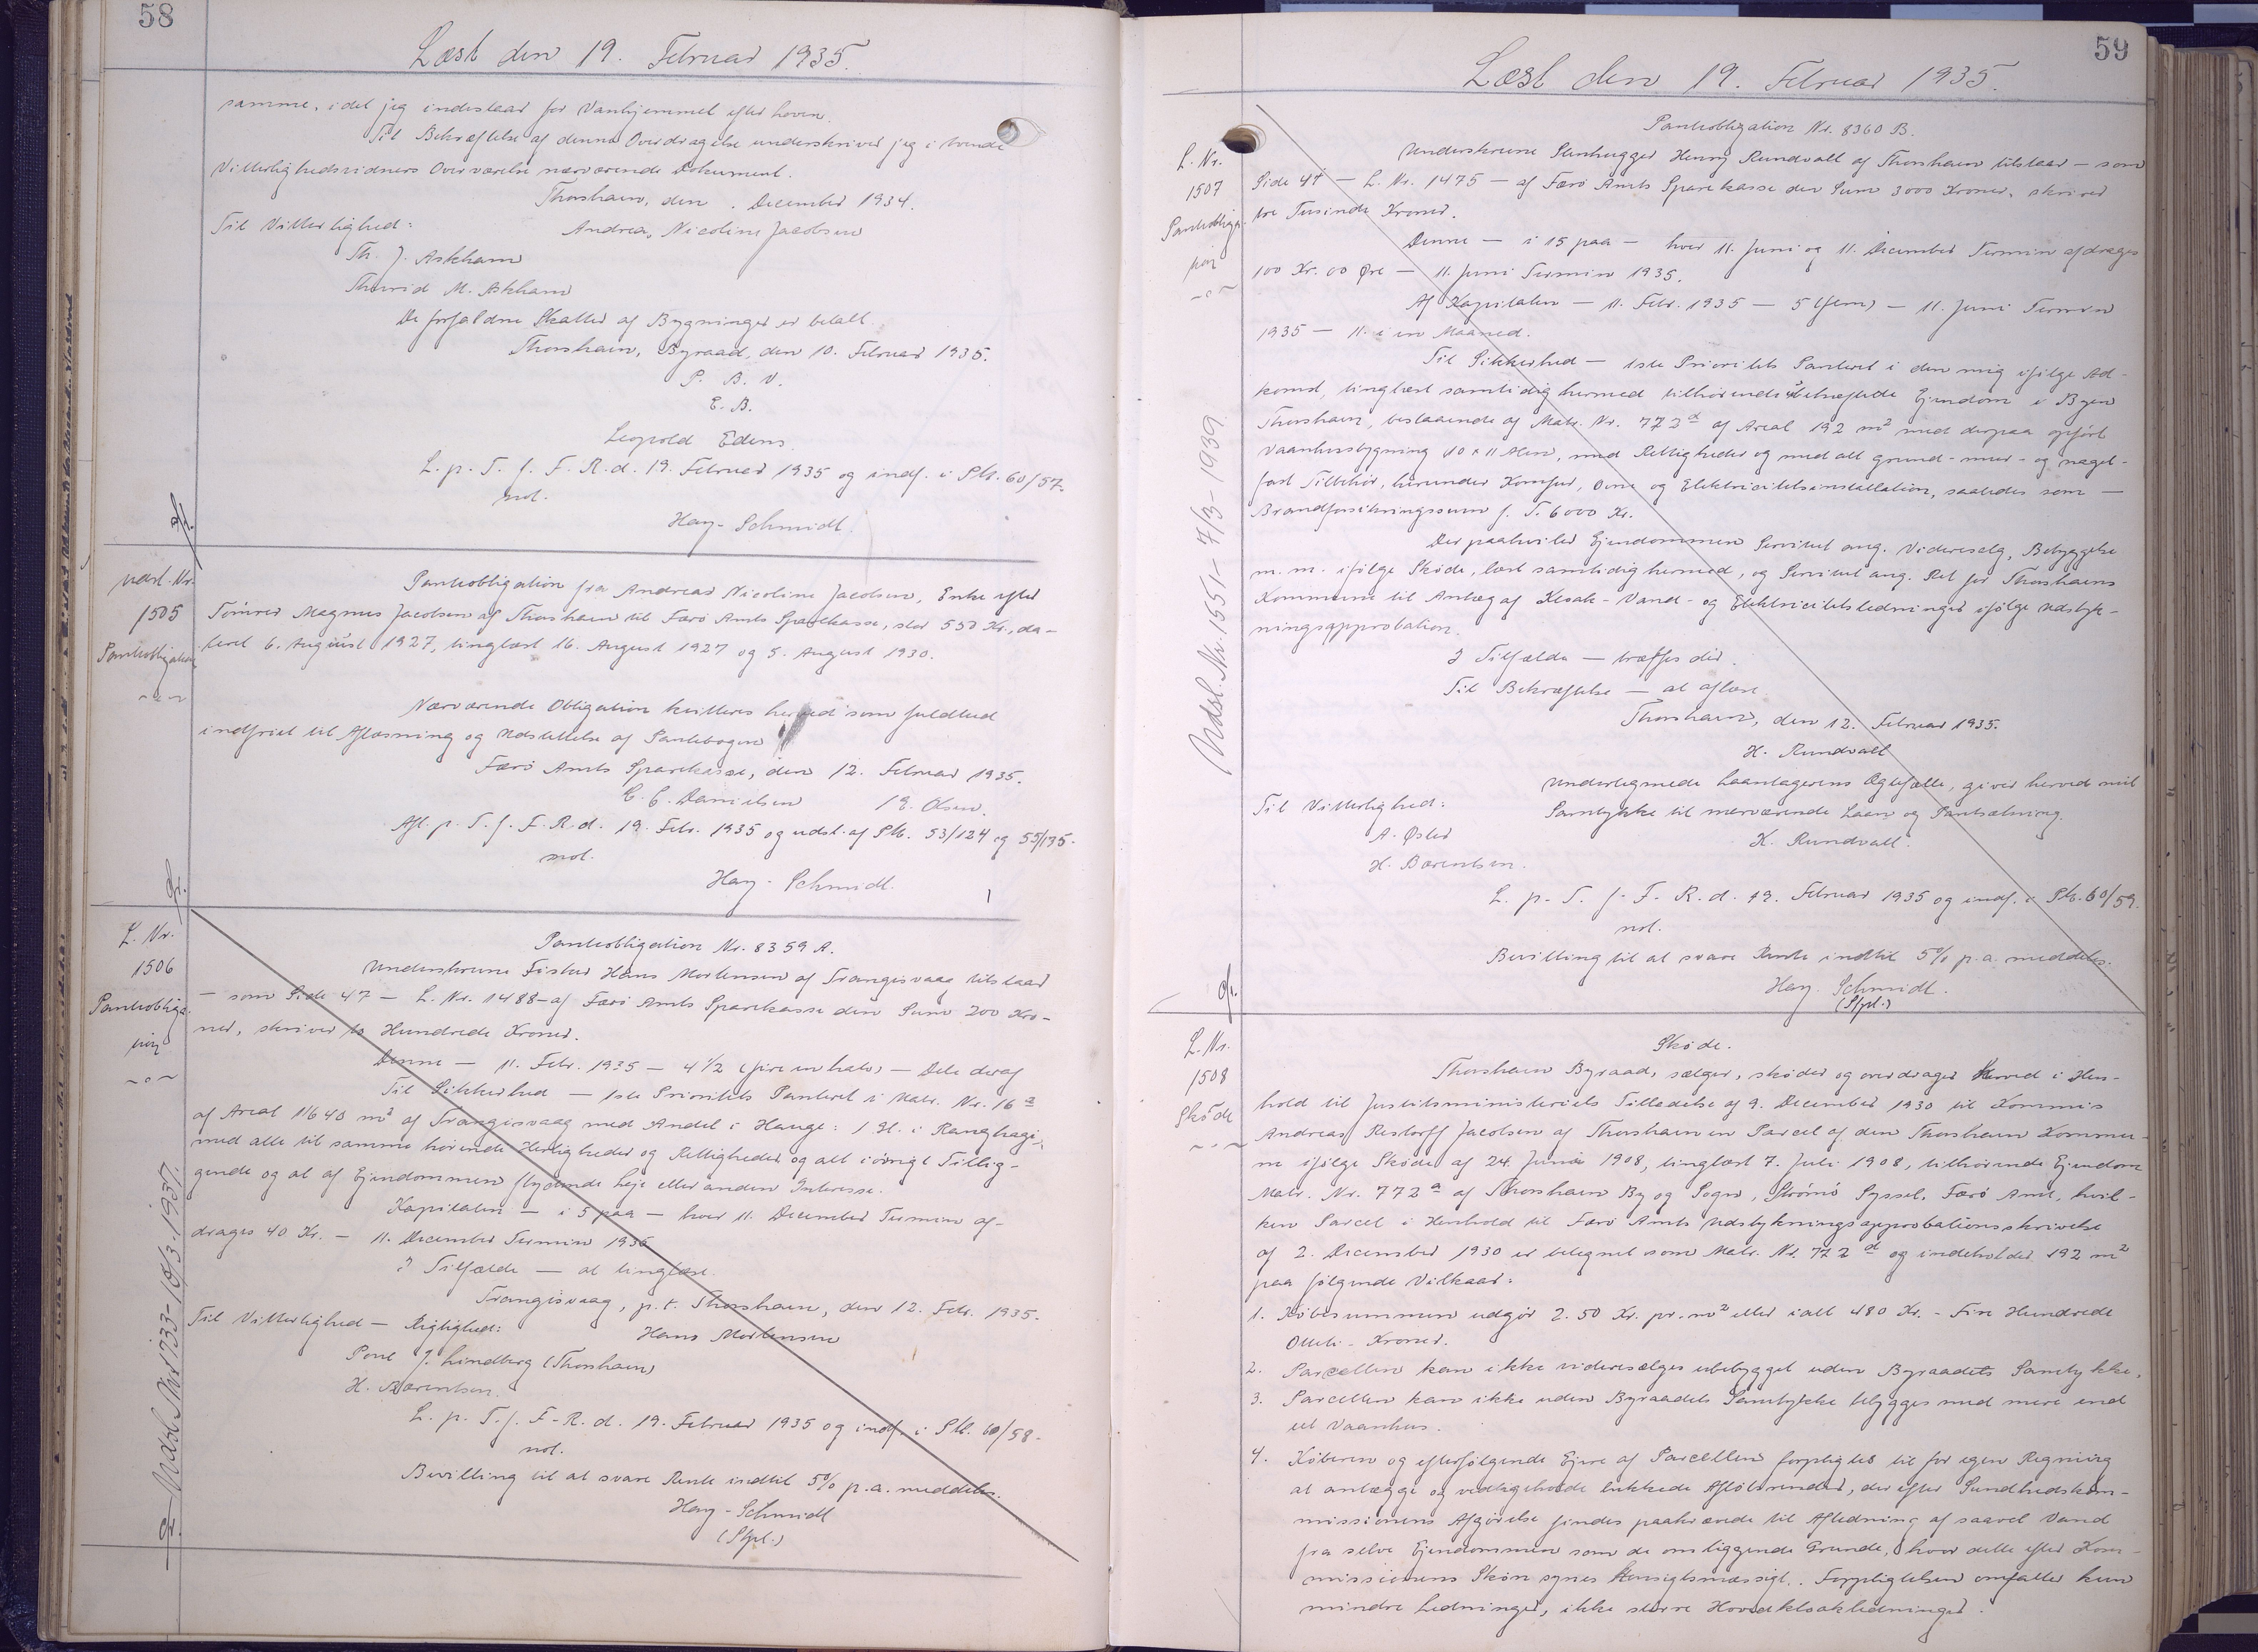 58
Læst den 19. Februar 1935.
samme, idet jeg indestaar for Vanhjemmel efter Loven.
Til Bekræftelse af denne Overdragelse underskriver jeg i tvende
Vitterlighedsvidners Overværelse nærværende Dokument.
Thorshavn, den . December 1934.
Til Vitterlighed: Andrea Nicoline Jacobsen
Th. J. Askham
Thurid M. Askham
De forfaldne Skatter af Bygninger er betalt.
Thorshavn, Byraad, den 10. Februar 1935.
P. B. V.
E. B.
Leopold Edens
L. p. T. f. F. R. d. 19. Februar 1935 og indf. i Ptb. 60/57.
mol.
Hay-Schmidt.
Udsl. Nr.
1505
Pantobligation
Pantobligation fra Andrea Nicoline Jacobsen, Enke efter
Tømrer Magnus Jacobsen af Thorshavn til Færø Amts Sparekasse, stor 550 Kr., da-
teret 6. August 1927, tinglæst 16. August 1927 og 5. August 1930.
Nærværende Obligation kvitteres herved som fuldtud
indfriet til Aflæsning og Udslettelse af Pantebogen
Færø Amts Sparekasse, den 12. Februar 1935.
C. C. Danielsen / E. Olsen.
Afl. p. T. f. F. R. d. 19. Febr. 1935 og udsl. af Ptb. 53/124 og 55/135.
mol.
Hay-Schmidt.
L. Nr.
1506
Pantobliga-
tion
Pantobligation Nr. 8359 A.
Underskrevne Fisker Hans Mortensen af Trangisvaag tilstaar
— som Side 47 — L. Nr. 1488 — af Færø Amts Sparekasse den Sum 200 Kro-
ner, skriver to Hundrede Kroner.
Denne — 11. Febr. 1935 — 4 1/2 (fire en halv) — Dele deraf
Til Sikkerhed — 1ste Prioritets Panteret i Matr. Nr. 16 a
af Areal 11640 m² af Trangisvaag med Andel i Hauge: 1 St. i Ranghagi,
med alle til samme hørende Herligheder og Rettigheder og alt iøvrigt Tillig-
gende og al af Ejendommen flydende Leje eller anden Interesse.
Kapitalen — i 5 paa — hver 11. December Termin af-
drages 40 Kr. — 11. December Termin 1936
I Tilfælde — at tinglæse.
Trangisvaag, p.t. Thorshavn, den 12. Febr. 1935.
Til Vitterlighed — Rigtighed: Hans Mortensen
Poul J. Lindberg (Thorshavn)
H. Bærentsen.
L. p. T. f. F. R. d. 19. Februar 1935 og indf. i Ptb. 60/58.
mol.
Bevilling til at svare Rente indtil 5% p.a. meddeles.
Hay-Schmidt
(Stpl.)
Udsl. Nr. 1733- 18/3. 1937.
59
Læst den 19. Februar 1935.
L. Nr.
1507
Pantobliga-
tion
Udsl. Nr. 1551- 7/3- 1939
Pantobligation Nr. 8360 B.
Underskrevne Stenhugger Henry Rundvall af Thorshavn tilstaar — som
Side 47 — L. Nr. 1475 — af Færø Amts Sparekasse den Sum 3000 Kroner, skriver
tre Tusinde Kroner.
Denne — i 15 paa — hver 11. Juni og 11. December Termin afdrages
100 Kr. 00 Øre — 11. Juni Termin 1935.
Af Kapitalen — 11. Febr. 1935 — 5 (fem) — 11. Juni Termin
1935 — 11. i en Maaned.
Til Sikkerhed — 1ste Prioritets Panteret i den mig ifølge Ad-
komst, tinglæst samtidig hermed tilhørende ubehæftede Ejendom i Byen
Thorshavn, bestaaende af Matr. Nr. 772 d af Areal 192 m² med derpaa opført
Vaanhusbygning 10 x 11 Alen, med Rettigheder og med alt grund- mur- og nagel-
fast Tilbehør, herunder Komfur, Ovne og Elektricitetsinstallation, saaledes som —
Brandforsikringssum f. T. 6000 Kr.
Der paahviler Ejendommen Servitut ang. Videresalg, Bebyggelse
m. m. ifølge Skøde, læst samtidig hermed, og Servitut ang. Ret for Thorshavns
Kommune til Anlæg af Kloak- Vand- og Elektricitetsledninger ifølge Udstyk-
ningsapprobation.
I Tilfælde — træffes dér.
Til Bekræftelse — at aflæse.
Thorshavn, den 12. Februar 1935.
H. Rundvall
Undertegnede Laantagerens Ægtefælle, giver herved mit
Til Vitterlighed: Samtykke til nærværende Laan og Pantsætning.
A. Øster K. Rundvall.
H. Bærentsen.
L. p. T. f. F. R. d. 19. Februar 1935 og indf. i Ptb. 60/59.
mol.
Bevilling til at svare Rente indtil 5% p.a. meddeles.
Hay-Schmidt.
(Stpl.)
L. Nr.
1508
Skøde
Skøde.
Thorshavn Byraad, sælger, skøder og overdrager herved i Hen-
hold til Justitsministeriets Tilladelse af 9. December 1930 til Kommis
Andreas Restorff Jacobsen af Thorshavn en Parcel af den Thorshavn Kommu-
ne ifølge Skøde af 24. Juni 1908, tinglæst 7. Juli 1908, tilhørende Ejendom
Matr. Nr. 772 a af Thorshavn By og Sogn, Strømø Syssel, Færø Amt, hvil-
ken Parcel i Henhold til Færø Amts Udstykningsapprobationsskrivelse
af 2. December 1930 er betegnet som Matr. Nr. 772 d og indeholder 192 m²
paa følgende Vilkaar:
1. Købesummen udgør 2.50 Kr. pr. m² eller ialt 480 Kr. - Fire Hundrede
Otteti - Kroner.
2. Parcellen kan ikke videresælges ubebygget uden Byraadets Samtykke.
3. Parcellen kan ikke uden Byraadets Samtykke bebygges med mere end
et Vaanhus.
4. Køberen og efterfølgende Ejere af Parcellen forpligtes til for egen Regning
at anlægge og vedligeholde lukkede Afløbsrender, der efter Sundhedskom-
missionens Afgørelse findes paakrævede til Afledning af saavel Vand
fra selve Ejendommen som de omliggende Grunde, hvor dette efter Kom-
missionens Skøn synes hensigtsmæssigt. Forpligtelsen omfatter kun
mindre Ledninger, ikke større Hovedkloakledninger.